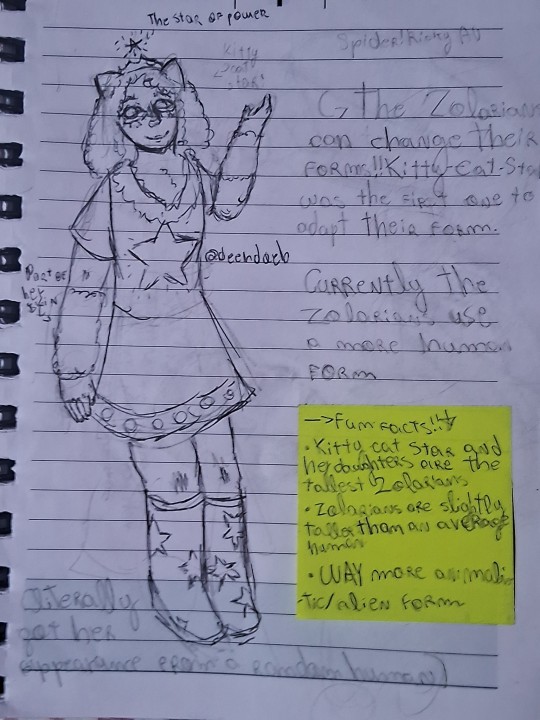 The star of power
Kitty
cat
star
Spiderthing AU
The Zolarians
can change their
forms!! Kitty-Cat-Sta
was the first one to
adapt their form.
@deendaeb
Part of
her
skin
Currently the
Zolarians use
a more human
form
→ Fun Facts!!
• Kitty cat star and
her daughters are the
tallest Zolarians
• Zolarians are slightly
taller than an average
human
• WAY more animalis
tic/alien form
(literally
got her
appearance from a random human)